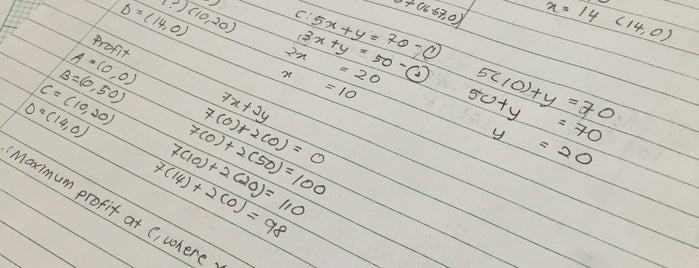 (10,20)
D = (14,0)
C: 5x + y = 70 - ①
3x + y = 50 - ②
2x = 20
x = 10
5(10) + y = 70
50 + y = 70
y = 20
x = 14 (14,0)
Profit
A = (0,0)
B = (0,50)
C = (10,20)
D = (14,0)
7x + 2y
7(0) + 2(0) = 0
7(0) + 2(50) = 100
7(10) + 2(20) = 110
7(14) + 2(0) = 98
∴ Maximum profit at C, where